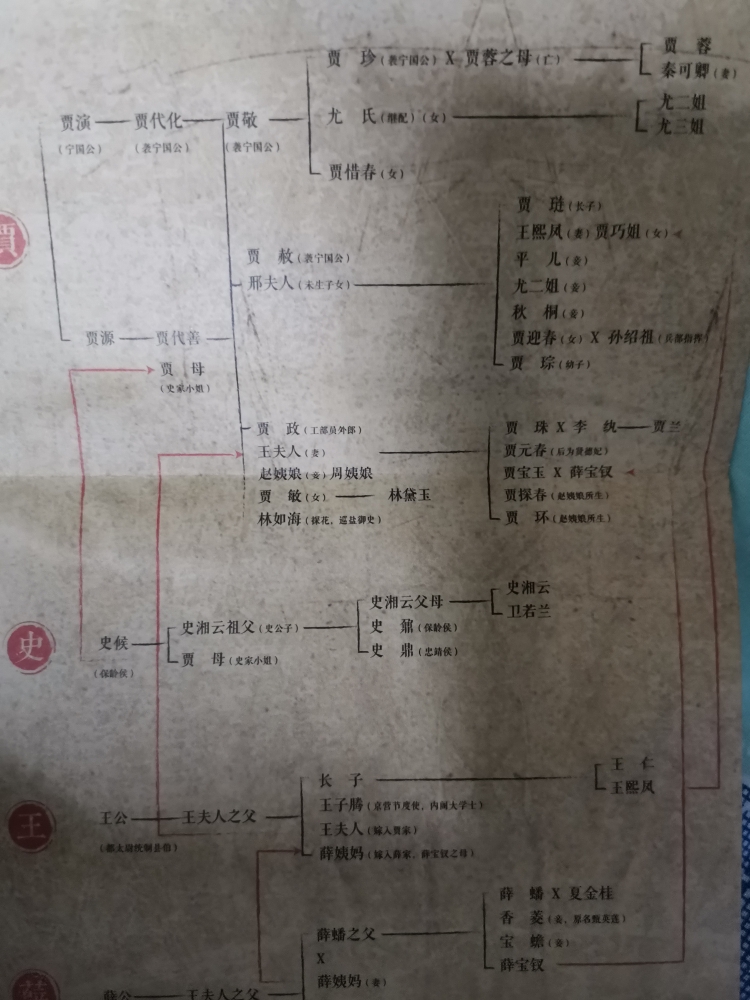 贾 珍（袭宁国公）X 贾蓉之母（亡）
贾 蓉
秦可卿（妻）
贾演 贾代化 贾敬
（宁国公） （袭宁国公） （袭宁国公）
尤 氏（继配）（女）
尤二姐
尤三姐
贾惜春（女）
賈
贾 赦（袭宁国公）
邢夫人（未生子女）
贾 琏（长子）
王熙凤（妻）贾巧姐（女）
平 儿（妾）
尤二姐（妾）
秋 桐（妾）
贾迎春（女）X 孙绍祖（兵部指挥）
贾 琮（幼子）
贾源 贾代善
贾 母
（史家小姐）
贾 政（工部员外郎）
王夫人（妻）
赵姨娘（妾）周姨娘
贾 敏（女） 林黛玉
林如海（探花、巡盐御史）
贾 珠 X 李 纨 贾兰
贾元春（后为贤德妃）
贾宝玉 X 薛宝钗
贾探春（赵姨娘所生）
贾 环（赵姨娘所生）
史
史候
（保龄侯）
史湘云祖父（史公子）
贾 母（史家小姐）
史湘云父母
史 鼐（保龄侯）
史 鼎（忠靖侯）
史湘云
卫若兰
王
王公 王夫人之父
（都太尉统制县伯）
长 子
王子腾（京营节度使，内阁大学士）
王夫人（嫁入贾家）
薛姨妈（嫁入薛家，薛宝钗之母）
王 仁
王熙凤
薛
薛公 王夫人之父
薛蟠之父
X
薛姨妈（妻）
薛 蟠 X 夏金桂
香 菱（妾、原名甄英莲）
宝 蟾（妾）
薛宝钗